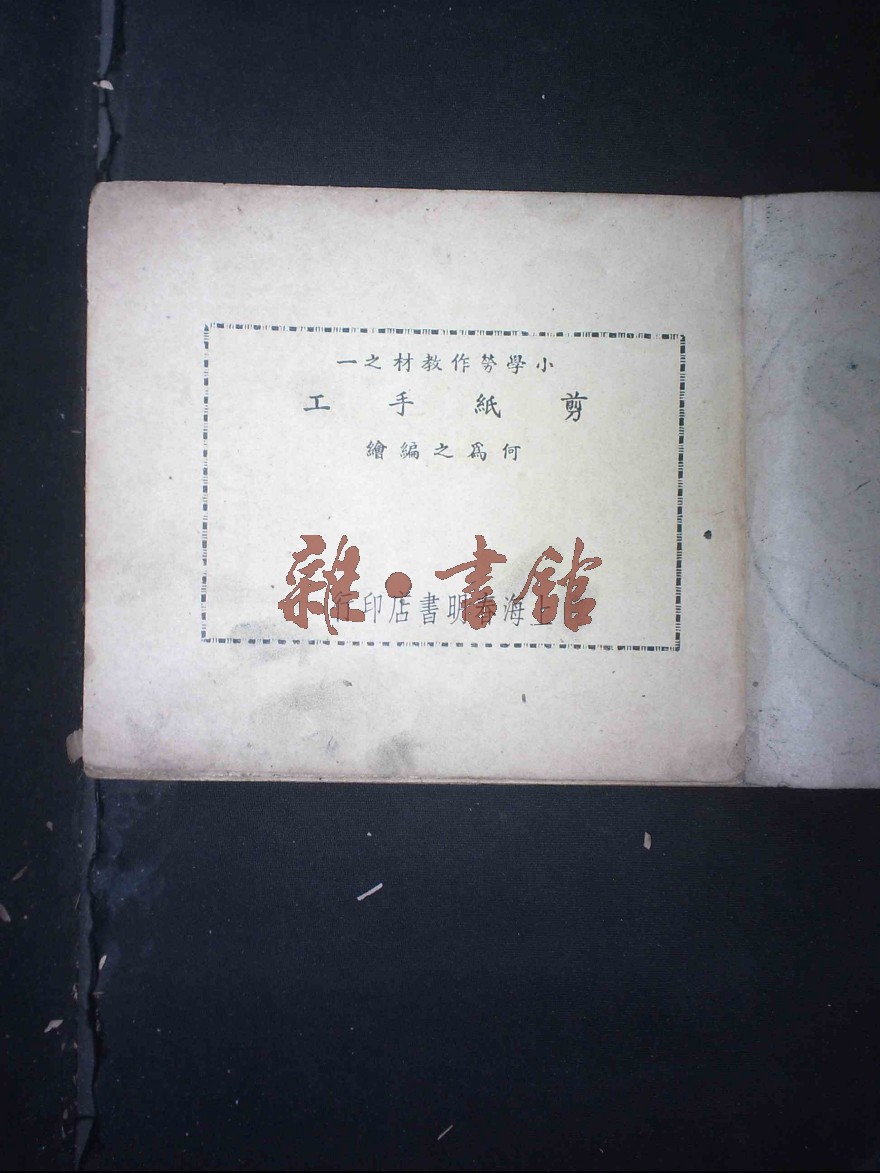 小學勞作教材之一
剪紙手工
何爲之編繪
上海春明書店印行
雜·書館